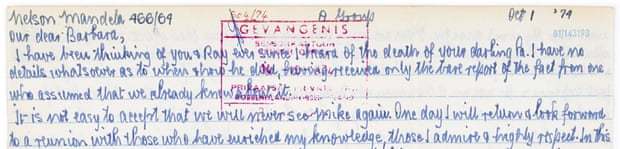 Nelson Mandela 466/64 A Group Oct 1 '74
Our dear Barbara,
GEVANGENIS
I have been thinking of you & Ray ever since I heard of the death of your darling Pa. I have no
details whatsoever as to when & how he died, having received only the bare report of the fact from one
who assumed that we already knew
It is not easy to accept that we will never see Mike again. One day I will return & look forward
to a reunion with those who have enriched my knowledge, those I admire & highly respect. In this